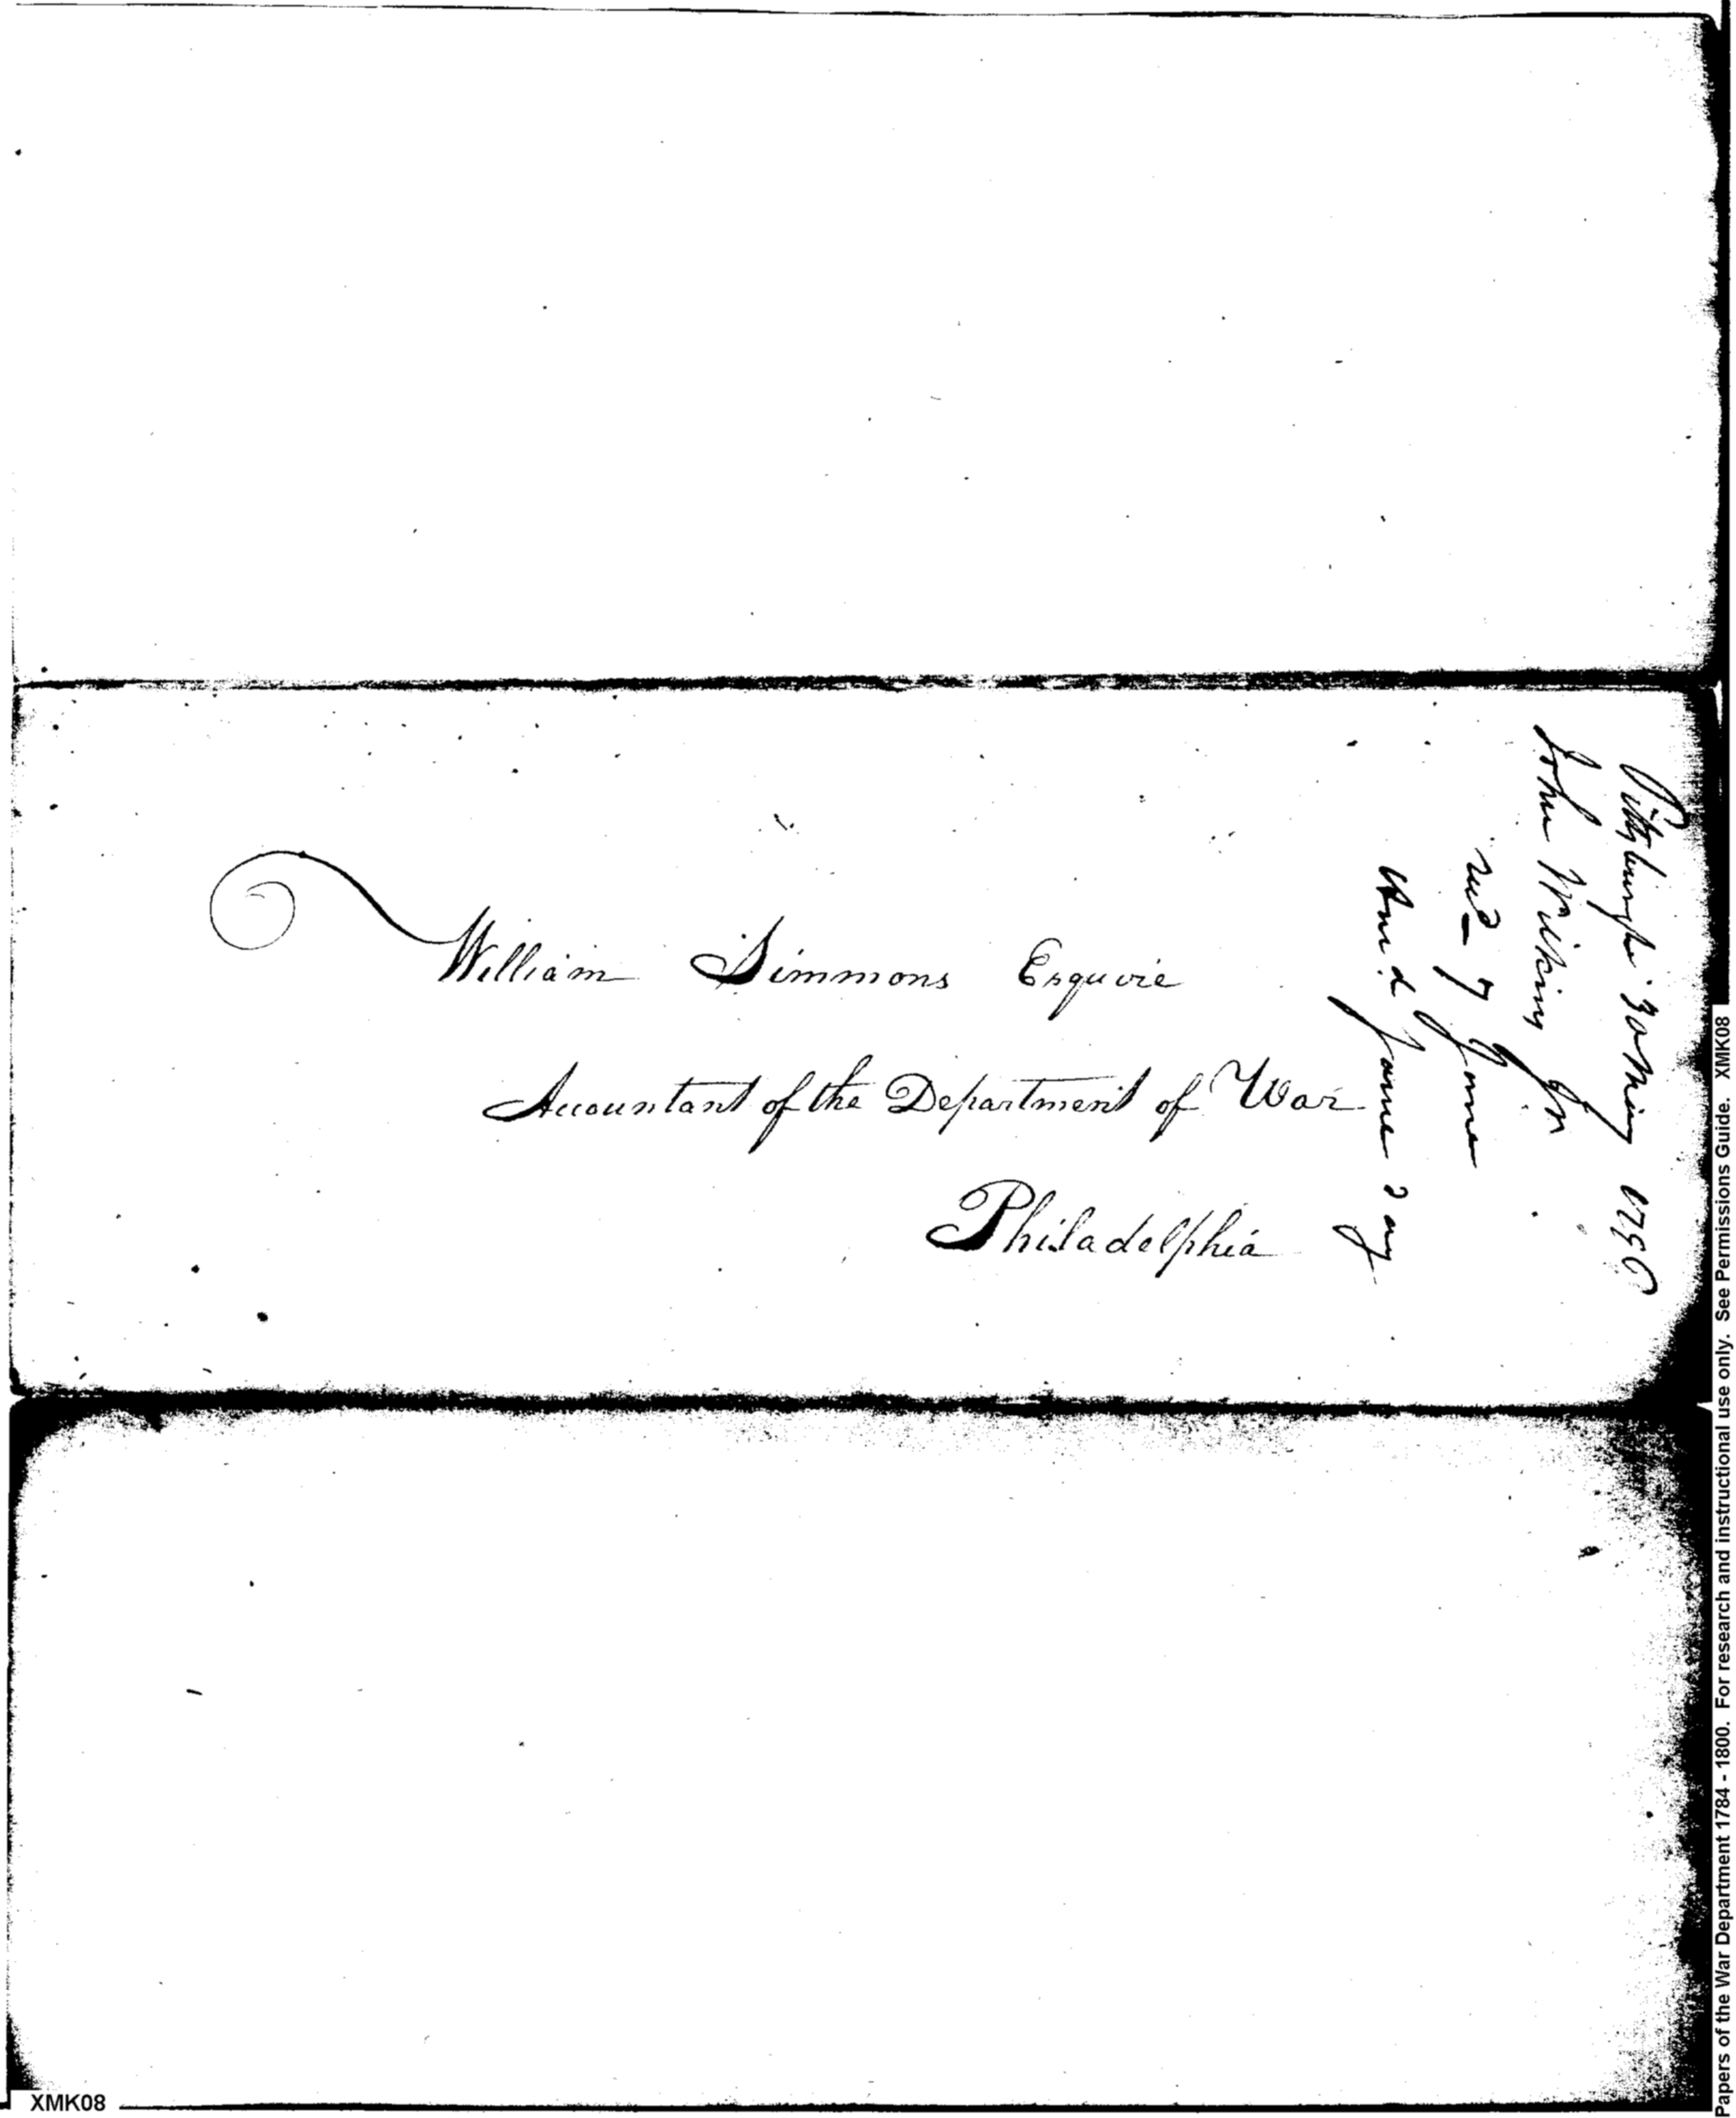 William Simmons Esquire
Accountant of the Department of War
Philadelphia
Pittsburgh 30 May
John Wilkins Jr
recd 7 June
Ansd same day
XMK08
Papers of the War Department 1784 - 1800. For research and instructional use only. See Permissions Guide. XMK08